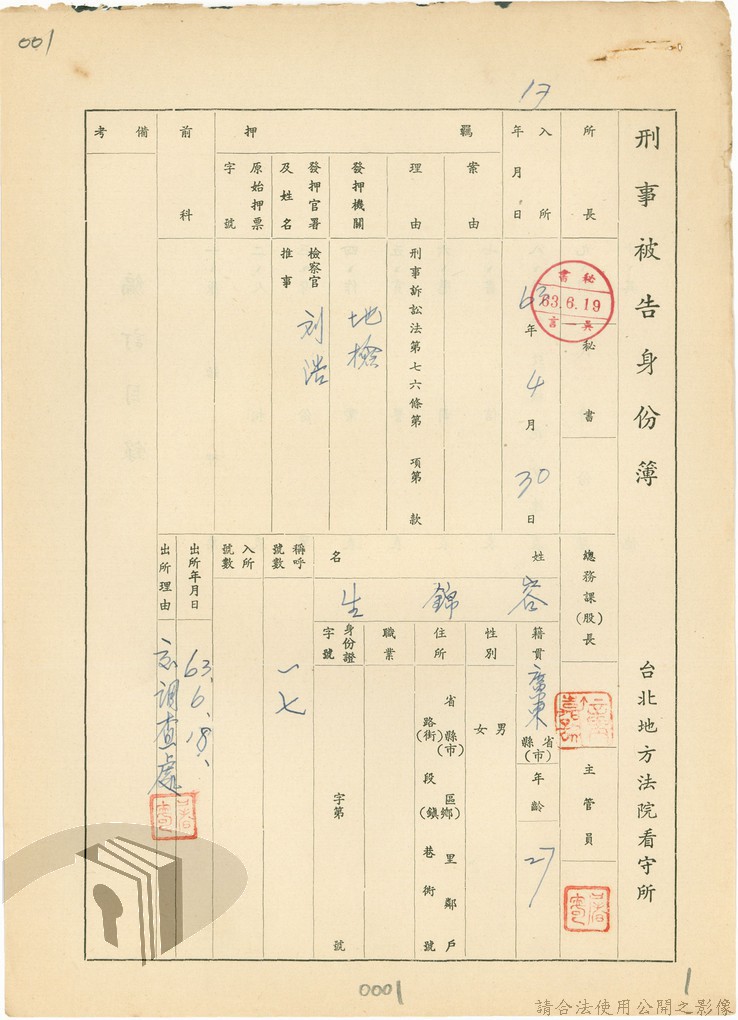 001
17
刑事被告身份簿
台北地方法院看守所
所長
秘書
秘書
63.6.19
吳一言
總務課(股)長
主管員
入所年月日
63年4月30日
羈押
案由
理由
刑事訴訟法第七六條第 項第 款
發押機關
地檢
發押官署及姓名
檢察官
推事
刘浩
原始押票字號
前科
備考
姓名
容錦生
籍貫
廣東省縣(市)
年齡
27
性別
男
女
住所
省縣(市)區鄉(鎮)里鄰戶
路(街)段巷衖號
職業
身份證字號
字第 號
稱呼號數
一七
入所號數
出所年月日
63.6.18.
出所理由
調查處
0001
1
請合法使用公開之影像